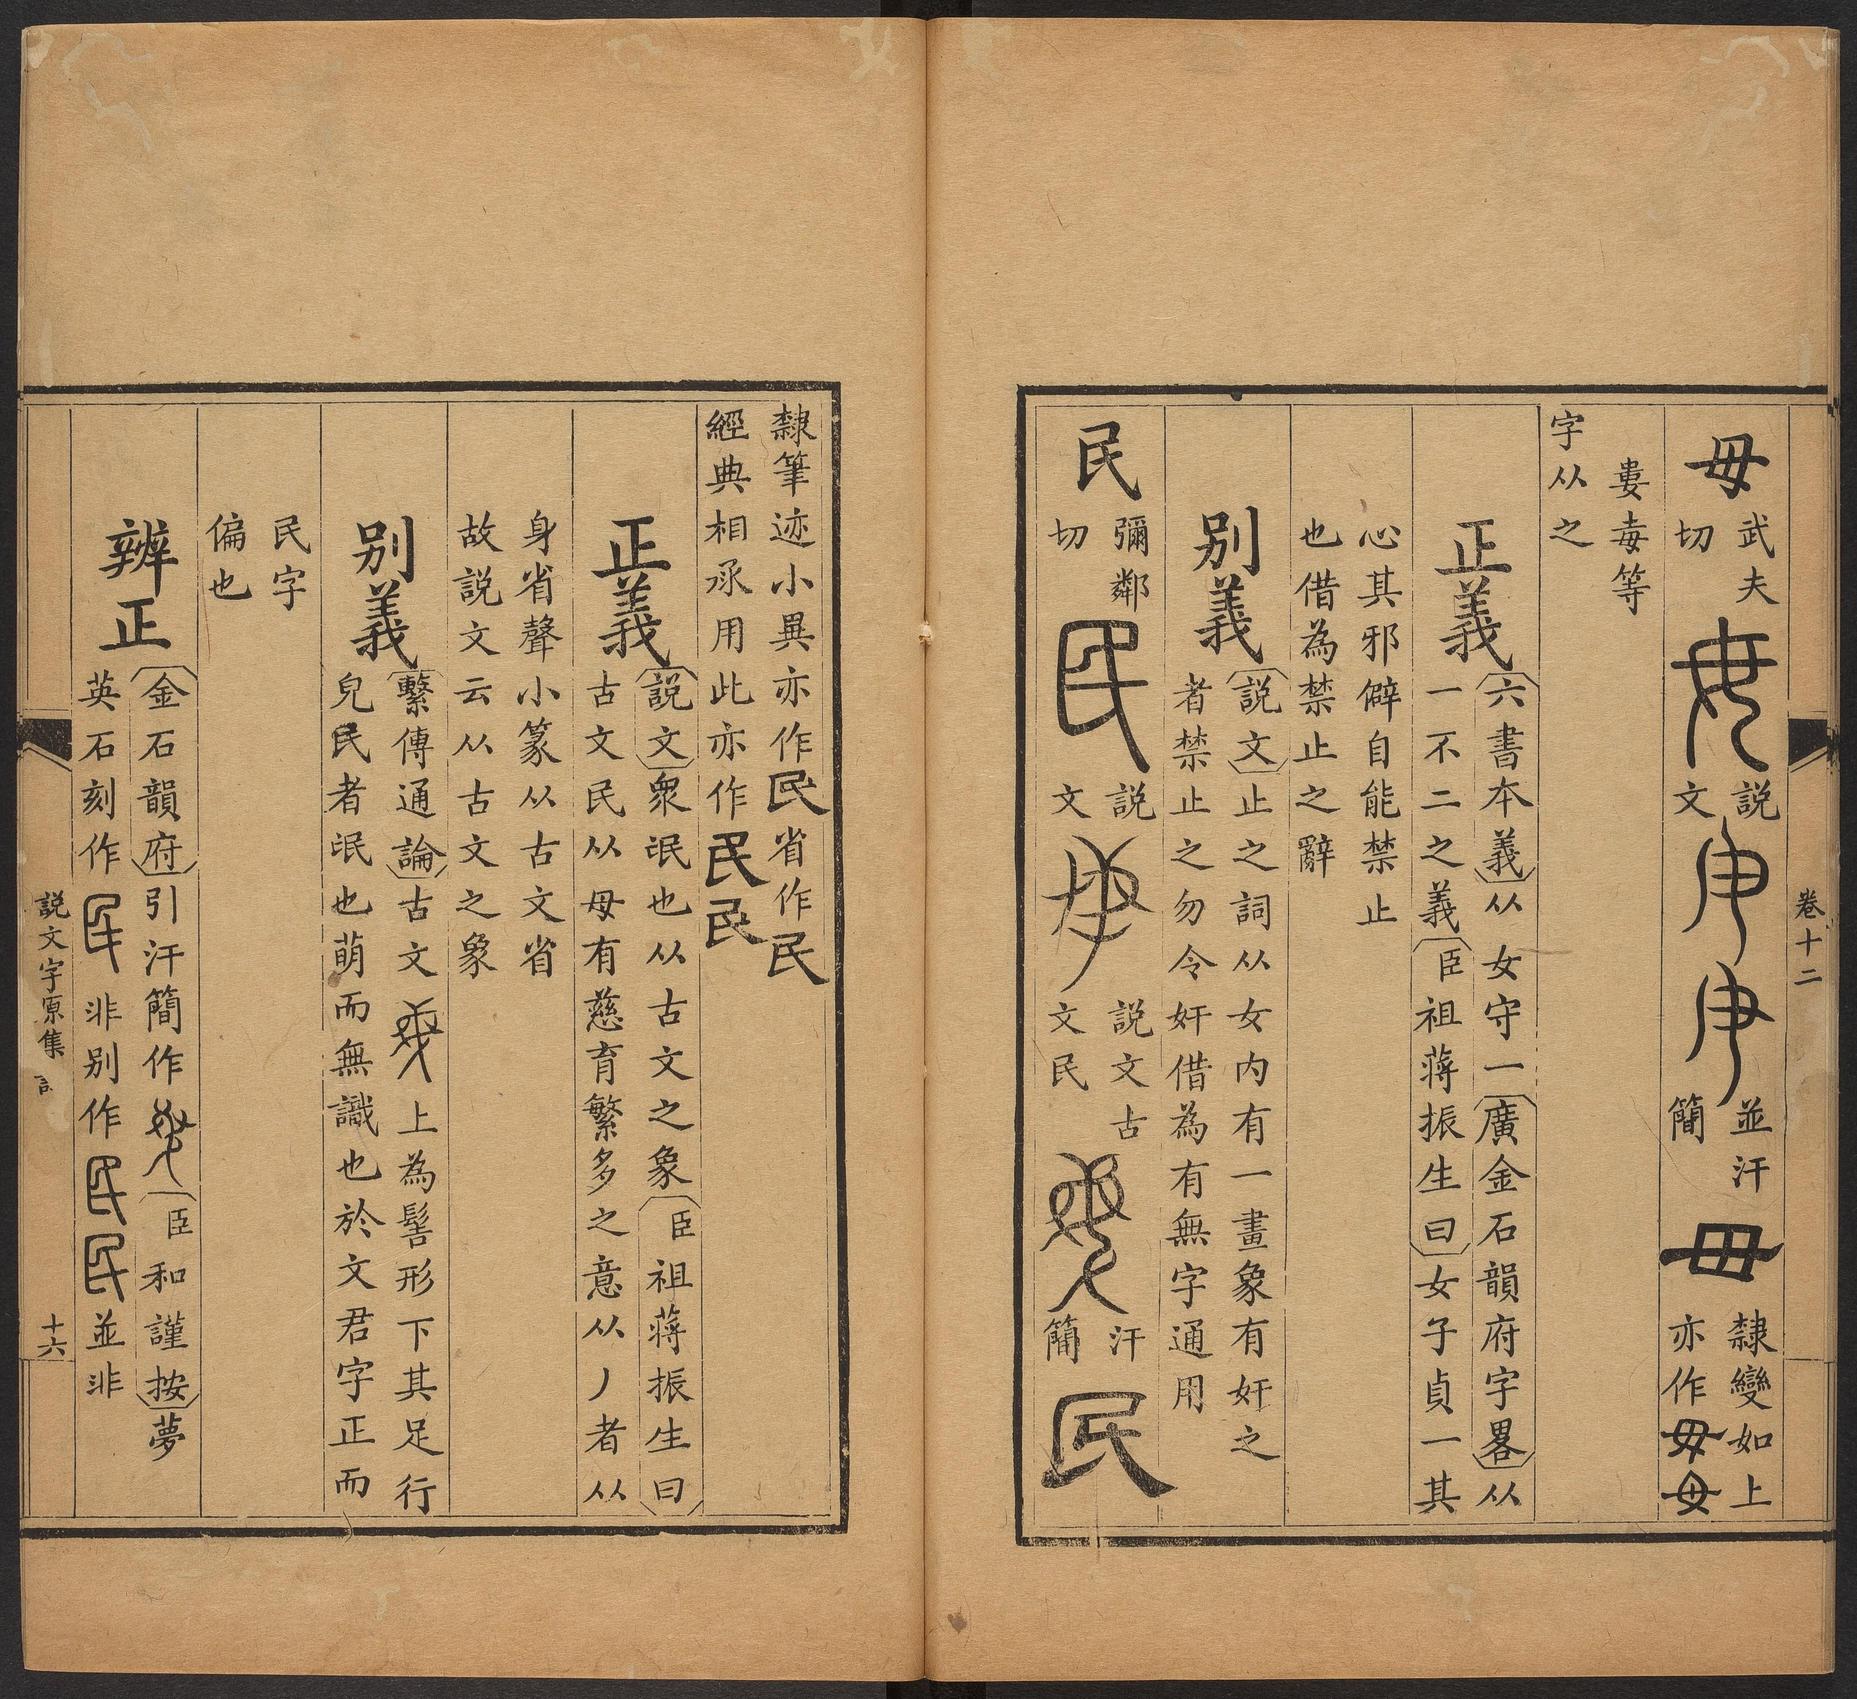 卷十二
毋
武夫
切
説
文
並汗
簡
隸變如上
亦作毋毋
婁毐等
字从之
正義
六書本義从女守一廣金石韻府字畧从
一不二之義臣祖蔣振生曰女子貞一其
心其邪僻自能禁止
也借為禁止之辭
别義
説文止之詞从女内有一畫象有奸之
者禁止之勿令奸借為有無字通用
民
彌鄰
切
民
説
文
説文古
文民
汗
簡
民
隸筆迹小異亦作民省作民
經典相承用此亦作民民
正義
説文衆氓也从古文之象臣祖蔣振生曰
古文民从母有慈育繁多之意从丿者从
身省聲小篆从古文省
故説文云从古文之象
别義
繫傳通論古文上為髻形下其足行
皃民者氓也萌而無識也於文君字正而
民字
偏也
辨正
金石韻府引汗簡作臣和謹按夢
英石刻作民非别作民民並非
説文字原集
十六